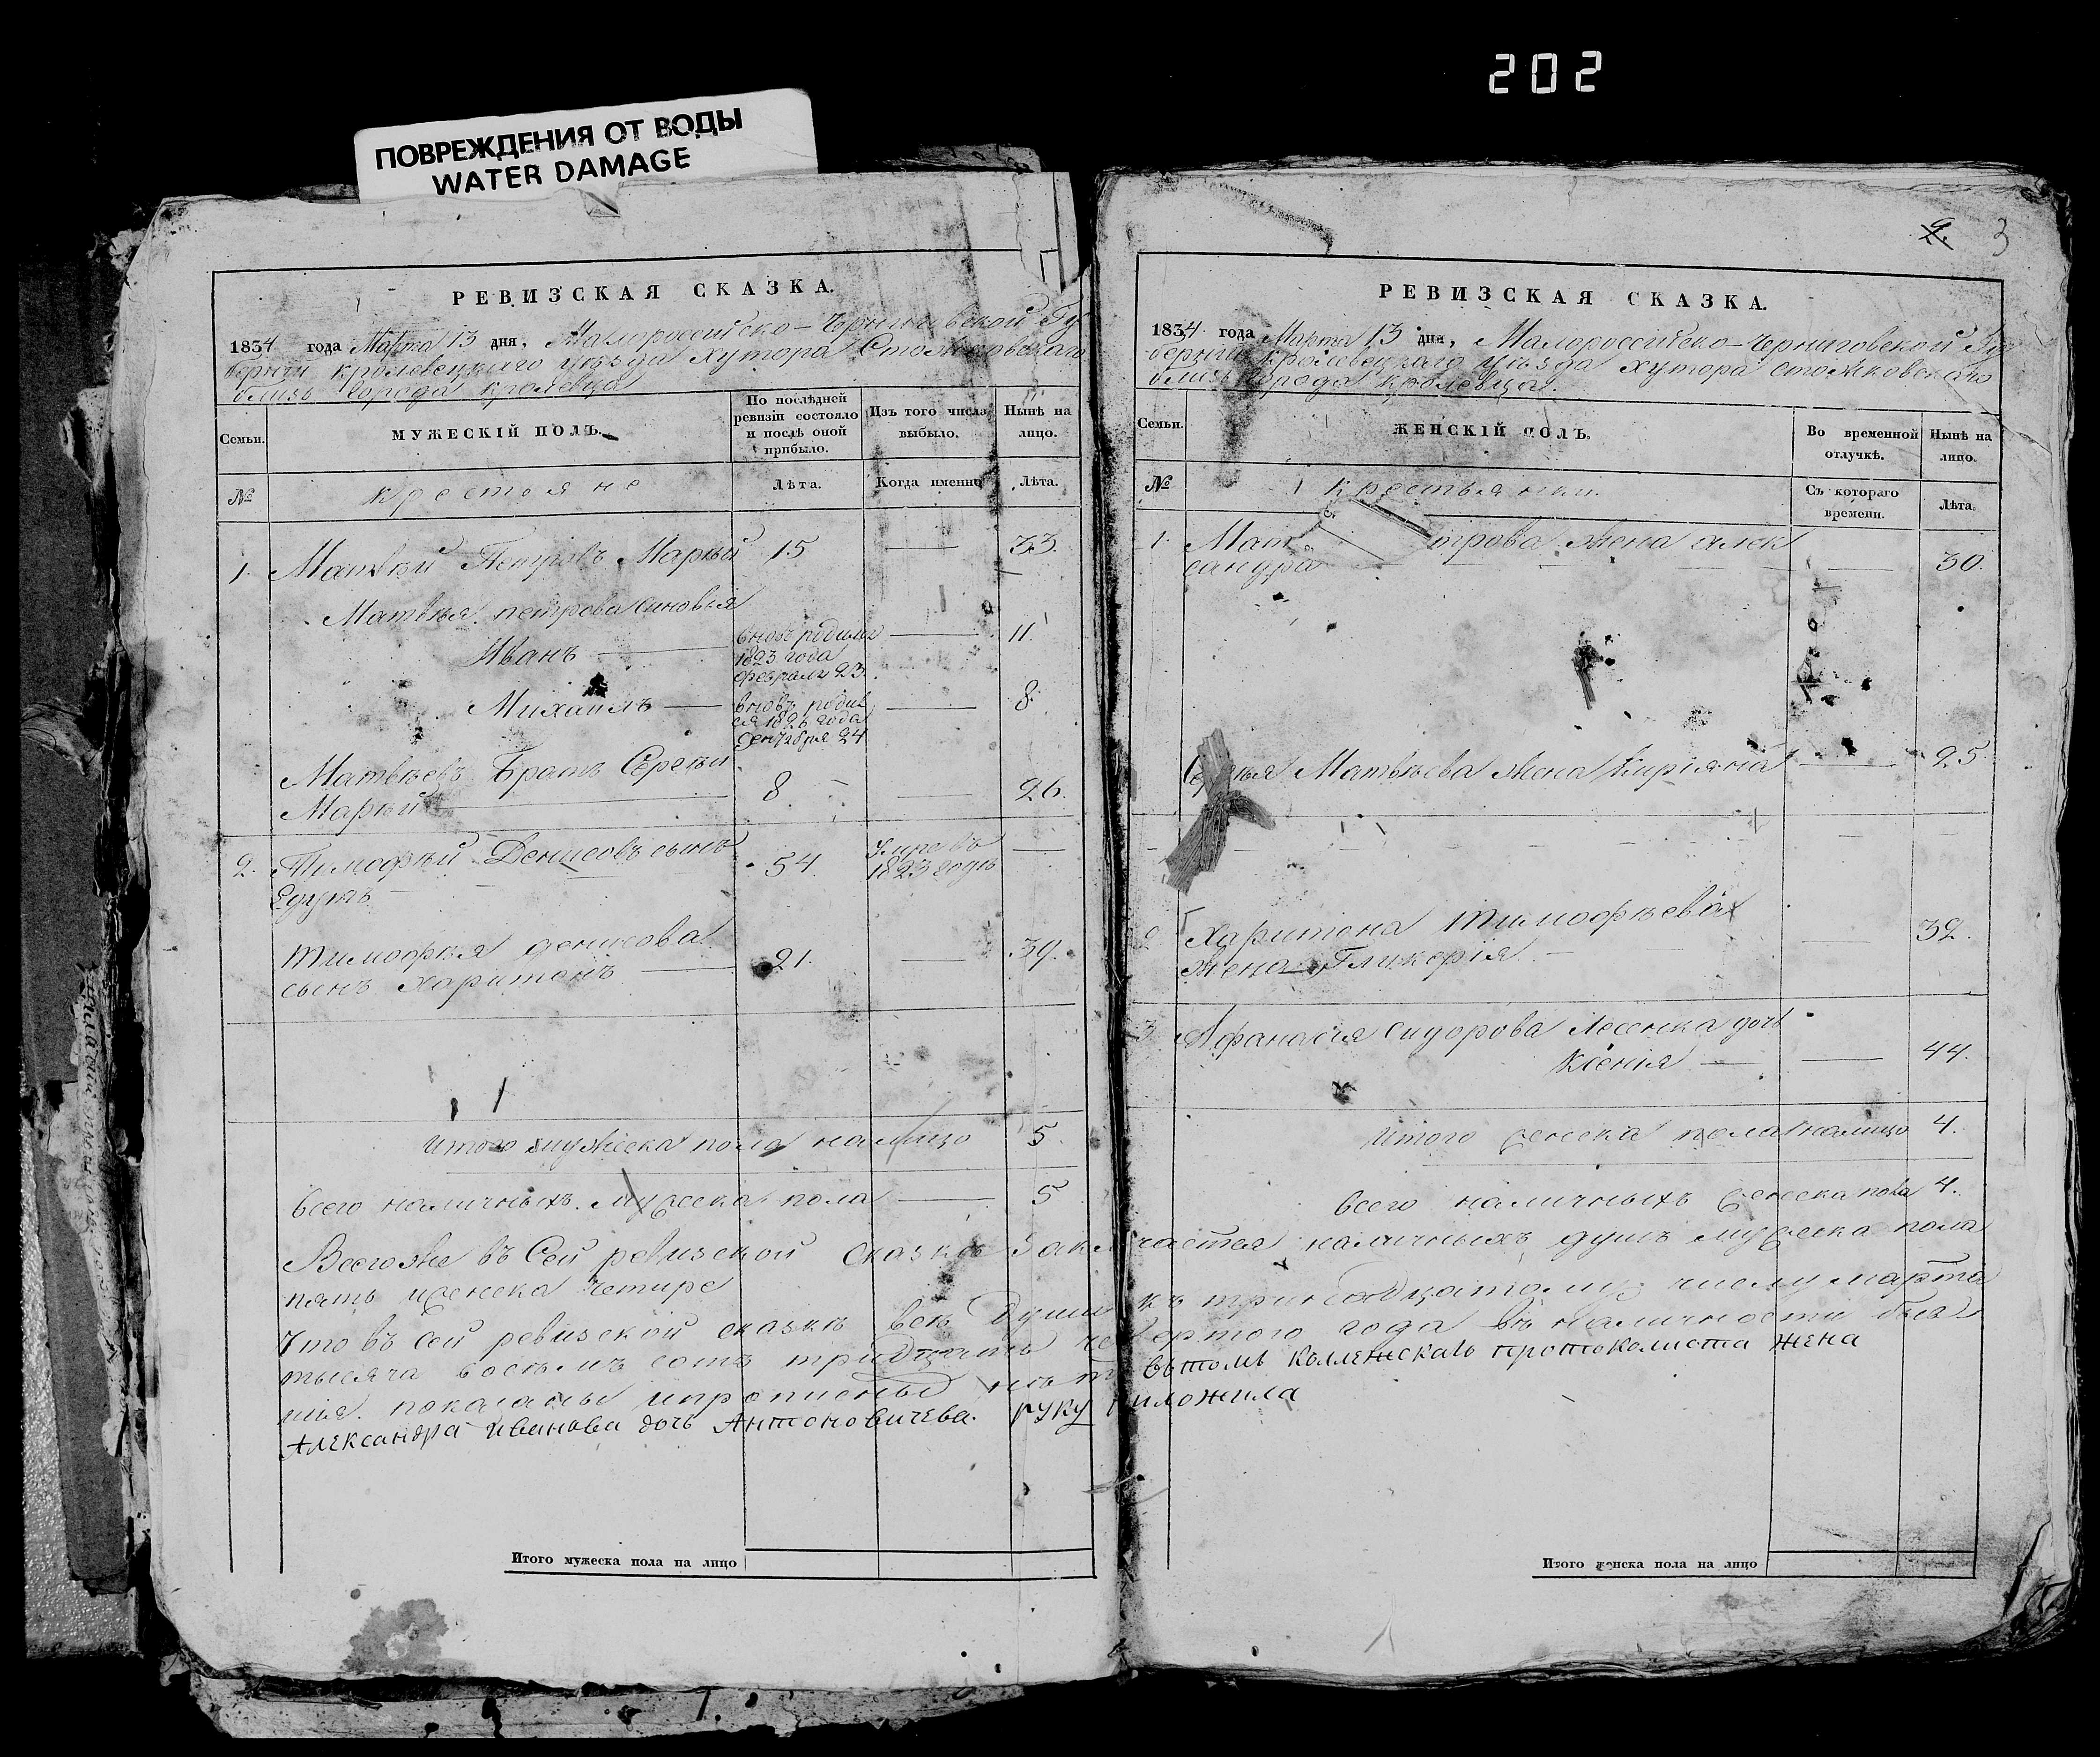 202
ПОВРЕЖДЕНИЯ ОТ ВОДЫ
WATER DAMAGE
РЕВИЗСКАЯ СКАЗКА.
1834 года Марта 13 дня, Малороссійско-Черниговской Гу
берніи кролевецкаго уѣзда хутора Стожковскаго
близь города кролевца
Семьи.
МУЖЕСКІЙ ПОЛЪ.
По послѣдней
ревизіи состояло
и послѣ оной
прибыло.
Изъ того числа
выбыло.
Нынѣ на
лицо.
№
крестьяне
Лѣта.
Когда именно
Лѣта.
1. Матвѣй Петровъ 15 — 33.
Матвѣя петрова синовья
Иванъ — вновь родился 1823 года февраля 23. — 11.
Михаилъ — вновь родив
ся 1826 года
Сентября 24 — 8.
Матвѣевъ Братъ Сергѣй
8 — 26.
2. Тимофѣй Денисовъ сынъ 54. умре въ
1823 годѣ —
Тимофѣя денисова
сынъ Харитонъ — 21. — 39.
итого мужеска пола налицо 5.
всего наличныхъ мужеска пола — 5
2. 3
РЕВИЗСКАЯ СКАЗКА.
1834 года Марта 13 дня, Малороссійско-Черниговской Гу
берніи Кролевецкаго уѣзда хутора стожковскаго
близь города кролевца.
Семьи.
ЖЕНСКІЙ ПОЛЪ.
Во временной
отлучкѣ.
Нынѣ на
лицо.
№
крестьянки.
Съ котораго
времени.
Лѣта.
1. Мат трова жена алек
сандра — 30.
Матвѣева жена Киріяна — 25.
2 Харитона Тимофѣева
жена Гликерія — 32.
3 Афанасія сидорова дочь
Ксенія — 44.
итого женска пола налицо 4.
всего наличныхъ женска пола 4.
Всего же въ Сей ревизской сказкѣ заключается наличныхъ душъ мужеска пола
пять женска четире
Что въ сей ревизской сказкѣ всѣ души къ тринадцатому числу марта
тысяча восѣмъ сотъ тридцать четвертого года въ наличности бы
шія показаны
въ томъ коллежскаго протоколиста жена
Александра иванова дочь Антоновичева. руку приложила
Итого мужеска пола на лицо
Итого женска пола на лицо